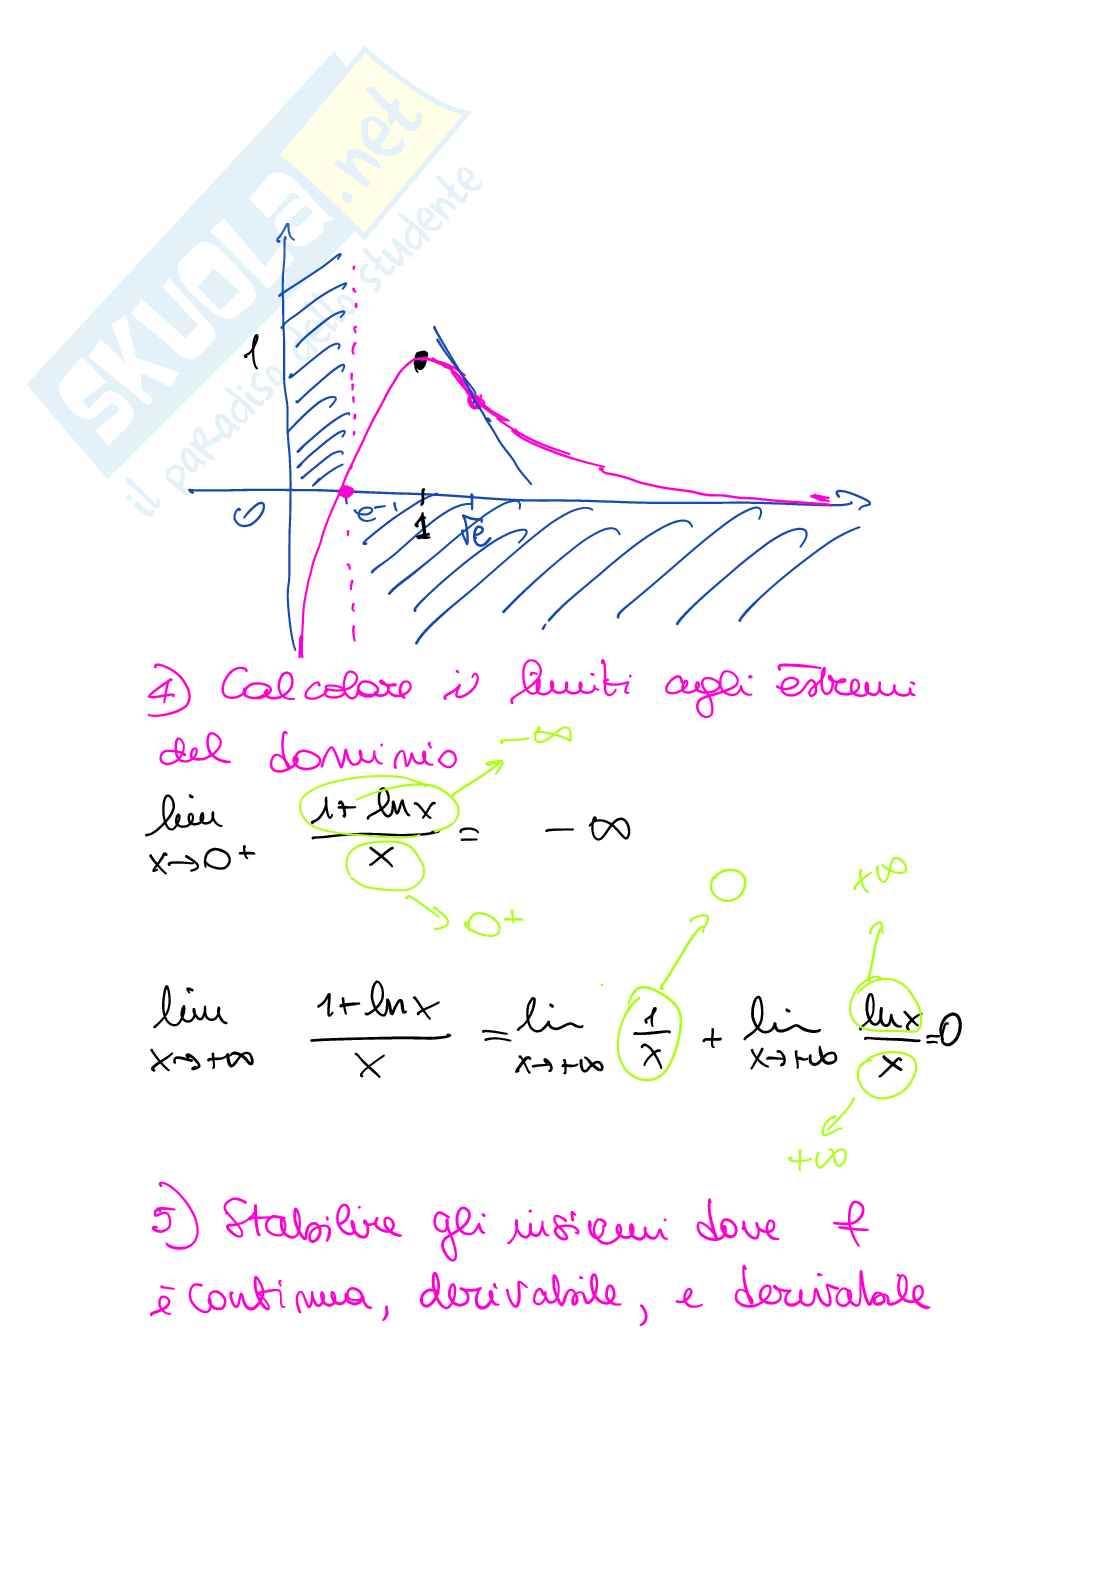 SKUOLA.net
il paradiso dello studente
1
0 e⁻¹ 1 √e
4) Calcolare i limiti agli estremi
del dominio
-∞
lim x→0⁺ (1+ln x)/x = -∞
0⁺
0 +∞
lim x→+∞ (1+ln x)/x = lim x→+∞ 1/x + lim x→+∞ ln x/x = 0
+∞
5) Stabilire gli insiemi dove f
è continua, derivabile, e derivabile